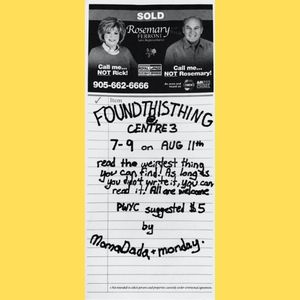 SOLD
Rosemary
FERRONI
Call me...
NOT Rick!
Call me...
NOT Rosemary!
905-662-6666
Item
FOUNDTHISTHING
@
CENTRE3
7-9 on AUG 11th
read the weirdest thing
you can find! As long as
you didn't write it, you can
read it! All are welcome
PWYC suggested $5
by
MamaDada + monday.